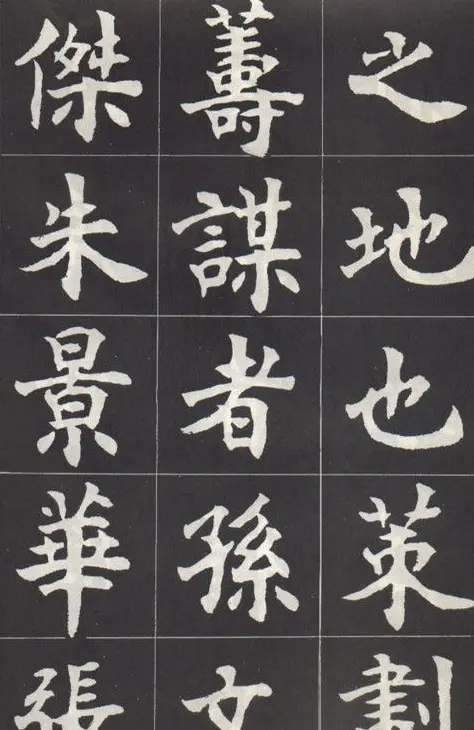 之地也茦劃
籌謀者孫文
傑朱景華張